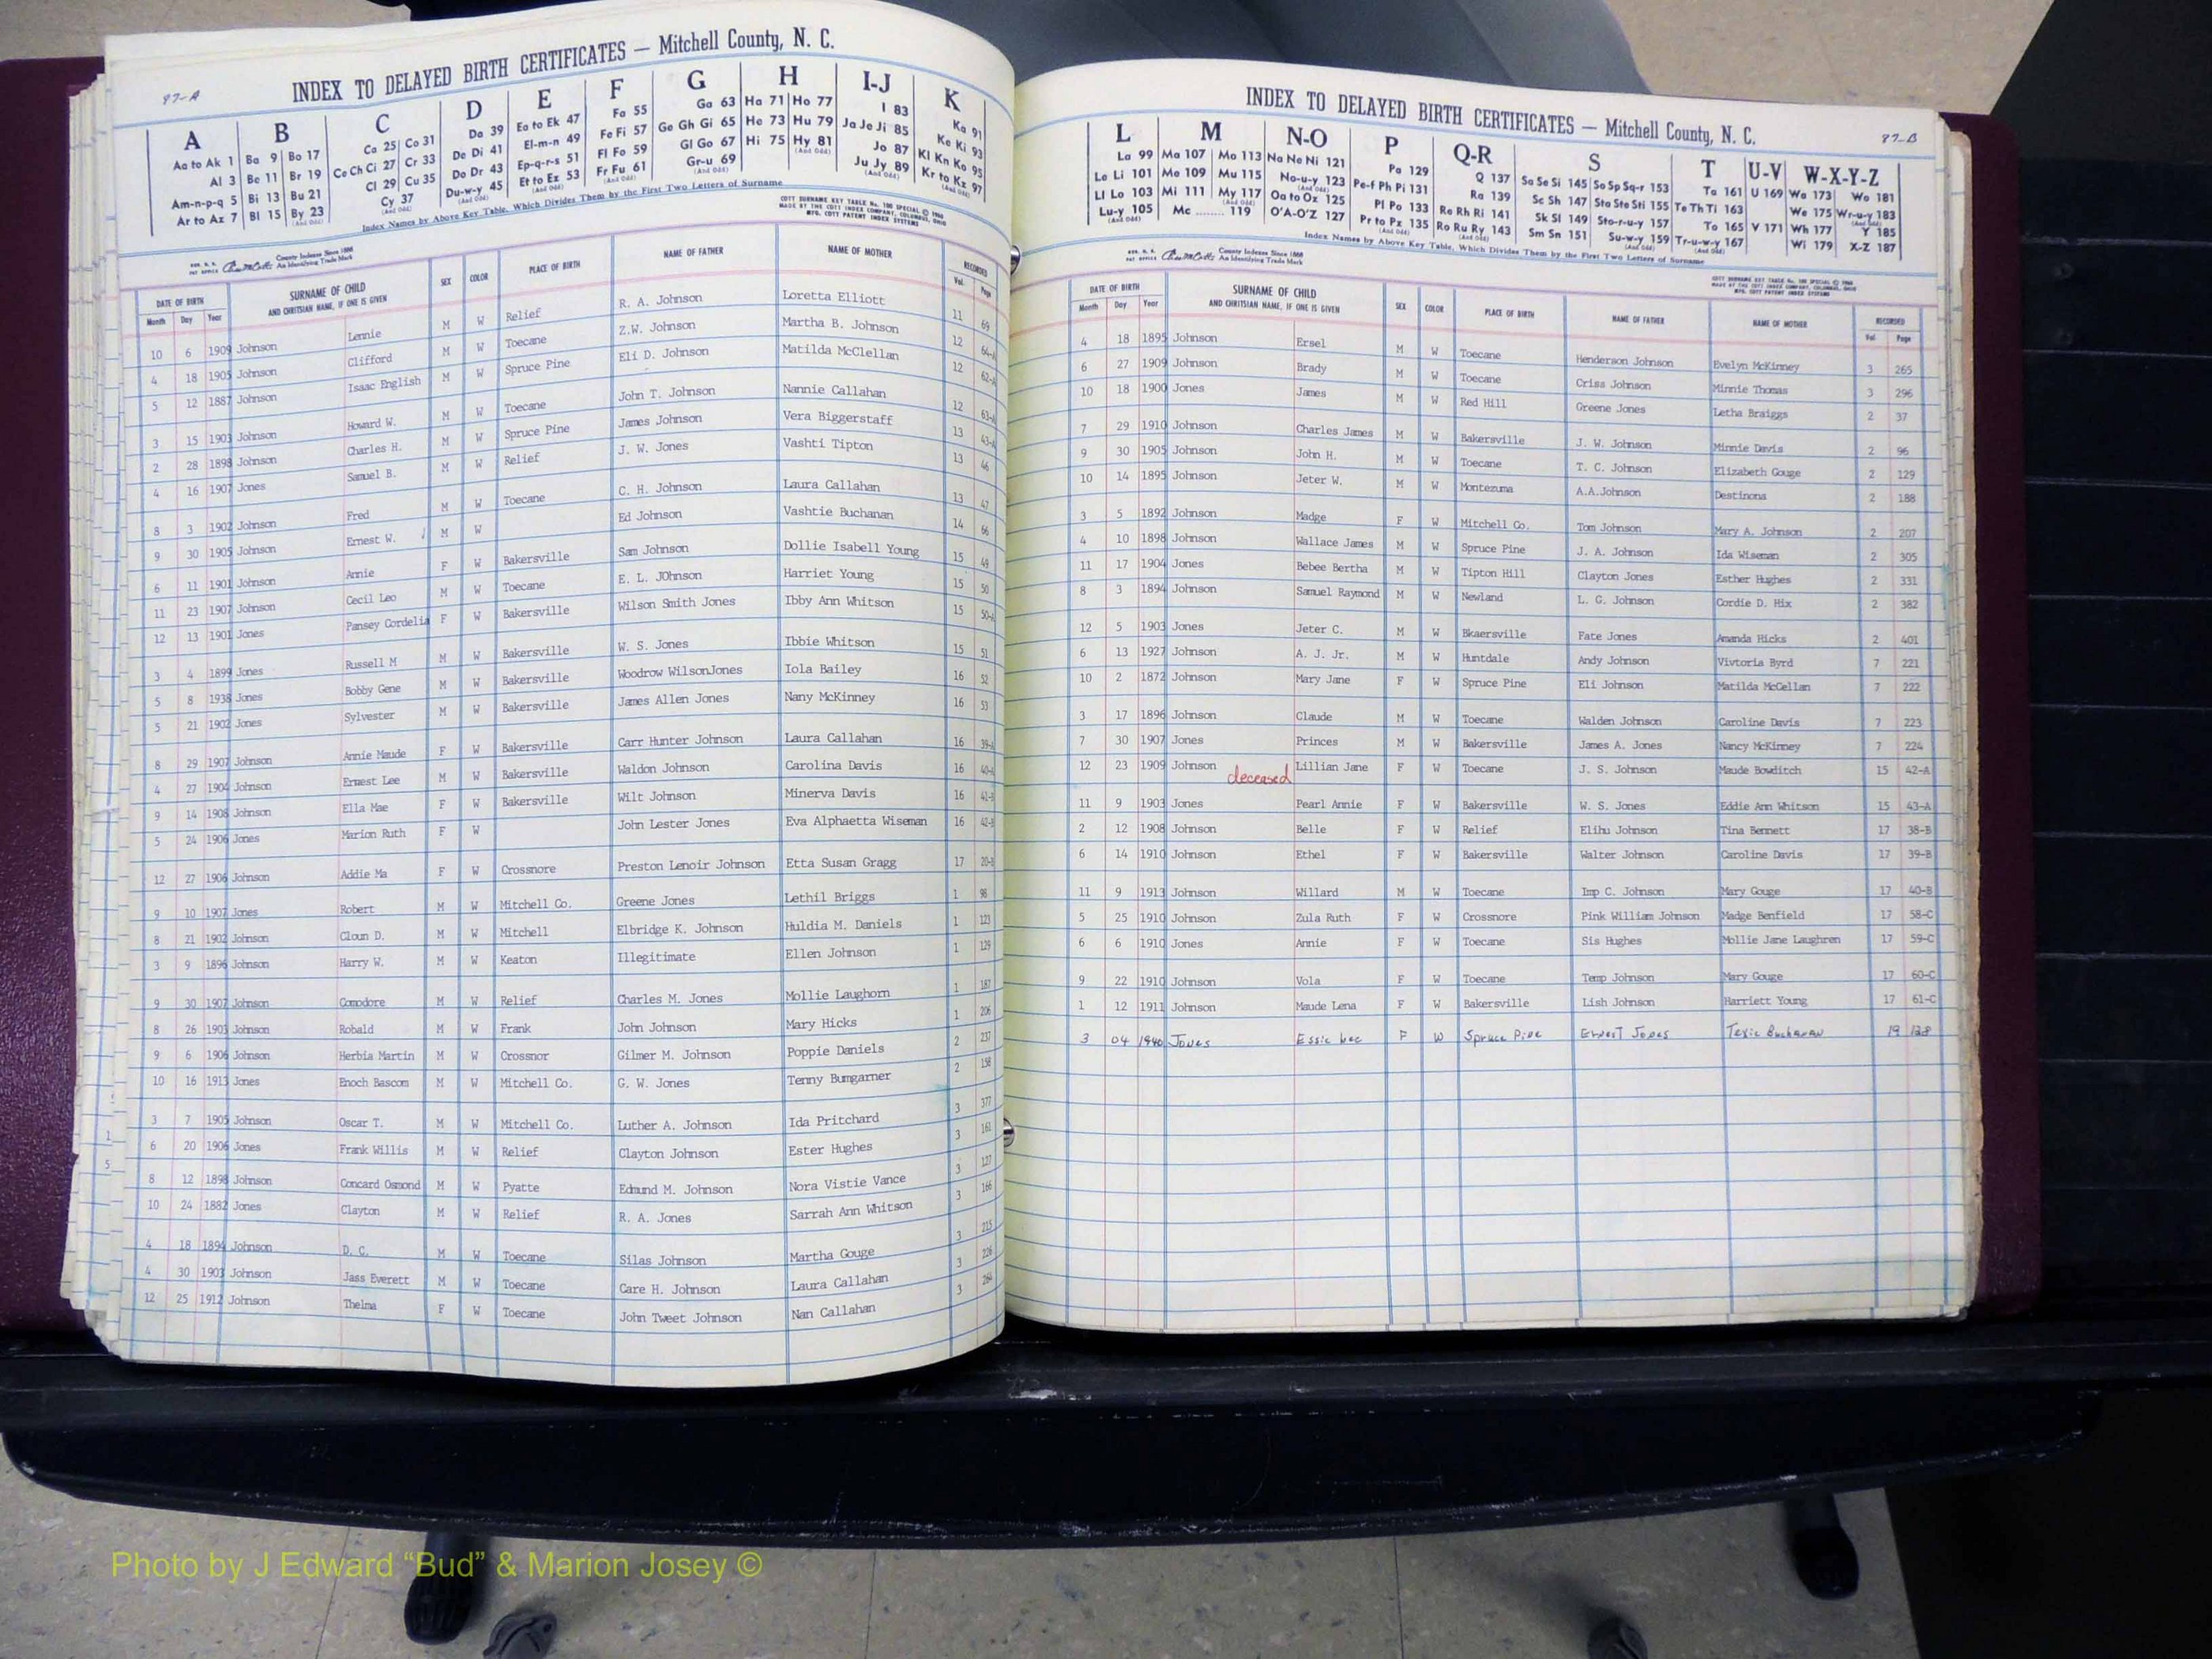 87-A
INDEX TO DELAYED BIRTH CERTIFICATES — Mitchell County, N. C.
A B C D E F G H I-J K
Aa to Ak 1 Ba 9 Bo 17 Ca 25 Co 31 Da 39 Ea to Ek 47 Fa 55 Ga 63 Ha 71 Ho 77 I 83 Ka 91
Al 3 Be 11 Br 19 Ce Ch Ci 27 Cr 33 De Di 41 El-m-n 49 Fe Fi 57 Ge Gh Gi 65 He 73 Hu 79 Ja Je Ji 85 Ke Ki 93
Am-n-p-q 5 Bi 13 Bu 21 Cl 29 Cu 35 Do Dr 43 Ep-q-r-s 51 Fl Fo 59 Gl Go 67 Hi 75 Hy 81 Jo 87 Kl Kn Ko 95
Ar to Az 7 Bl 15 By 23 Cy 37 Du-w-y 45 Et to Ez 53 Fr Fu 61 Gr-u 69 Ju Jy 89 Kr to Kz 97
Index Names by Above Key Table, Which Divides Them by the First Two Letters of Surname
COTT SURNAME KEY TABLE No. 100 SPECIAL © 1966
MADE BY THE COTT INDEX COMPANY, COLUMBUS, OHIO
MFG. COTT PATENT INDEX SYSTEMS
County Indexes Since 1888
An Identifying Trade Mark
DATE OF BIRTH SURNAME OF CHILD SEX COLOR PLACE OF BIRTH NAME OF FATHER NAME OF MOTHER RECORDED
Month Day Year AND CHRITSIAN NAME, IF ONE IS GIVEN Vol. Page
10 6 1909 Johnson Lennie M W Relief R. A. Johnson Loretta Elliott 11 69
4 18 1905 Johnson Clifford M W Toecane Z.W. Johnson Martha B. Johnson 12 64-A
5 12 1887 Johnson Isaac English M W Spruce Pine Eli D. Johnson Matilda McClellan 12 62-A
3 15 1903 Johnson Howard W. M W Toecane John T. Johnson Nannie Callahan 12 63-A
2 28 1898 Johnson Charles H. M W Spruce Pine James Johnson Vera Biggerstaff 13 43-A
4 16 1907 Jones Samuel B. M W Relief J. W. Jones Vashti Tipton 13 46
8 3 1902 Johnson Fred M W Toecane C. H. Johnson Laura Callahan 13 47
9 30 1905 Johnson Ernest W. M W Ed Johnson Vashtie Buchanan 14 66
6 11 1901 Johnson Annie F W Bakersville Sam Johnson Dollie Isabell Young 15 49
11 23 1907 Johnson Cecil Leo M W Toecane E. L. JOhnson Harriet Young 15 50
12 13 1901 Jones Pansey Cordelia F W Bakersville Wilson Smith Jones Ibby Ann Whitson 15 50-A
3 4 1899 Jones Russell M M W Bakersville W. S. Jones Ibbie Whitson 15 51
5 8 1938 Jones Bobby Gene M W Bakersville Woodrow WilsonJones Iola Bailey 16 52
5 21 1902 Jones Sylvester M W Bakersville James Allen Jones Nany McKinney 16 53
8 29 1907 Johnson Annie Maude F W Bakersville Carr Hunter Johnson Laura Callahan 16 39-A
4 27 1904 Johnson Ernest Lee M W Bakersville Waldon Johnson Carolina Davis 16 40-A
9 14 1908 Johnson Ella Mae F W Bakersville Wilt Johnson Minerva Davis 16 41-B
5 24 1906 Jones Marion Ruth F W John Lester Jones Eva Alphaetta Wiseman 16 42-B
12 27 1906 Johnson Addie Ma F W Crossnore Preston Lenoir Johnson Etta Susan Gragg 17 20-B
9 10 1907 Jones Robert M W Mitchell Co. Greene Jones Lethil Briggs 1 98
8 21 1902 Johnson Cloun D. M W Mitchell Elbridge K. Johnson Huldia M. Daniels 1 123
3 9 1896 Johnson Harry W. M W Keaton Illegitimate Ellen Johnson 1 129
9 30 1907 Johnson Comodore M W Relief Charles M. Jones Mollie Laughorn 1 187
8 26 1903 Johnson Robald M W Frank John Johnson Mary Hicks 1 206
9 6 1906 Johnson Herbia Martin M W Crossnor Gilmer M. Johnson Poppie Daniels 2 237
10 16 1913 Jones Enoch Bascom M W Mitchell Co. G. W. Jones Tenny Bumgarner 2 158
3 7 1905 Johnson Oscar T. M W Mitchell Co. Luther A. Johnson Ida Pritchard 3 377
6 20 1906 Jones Frank Willis M W Relief Clayton Johnson Ester Hughes 3 161
8 12 1898 Johnson Concard Osmond M W Pyatte Edmund M. Johnson Nora Vistie Vance 3 127
10 24 1882 Jones Clayton M W Relief R. A. Jones Sarrah Ann Whitson 3 166
4 18 1894 Johnson D. C. M W Toecane Silas Johnson Martha Gouge 3 215
4 30 1903 Johnson Jass Everett M W Toecane Gare H. Johnson Laura Callahan 3 226
12 25 1912 Johnson Thelma F W Toecane John Tweet Johnson Nan Callahan 3 264
87-B
INDEX TO DELAYED BIRTH CERTIFICATES — Mitchell County, N. C.
L M N-O P Q-R S T U-V W-X-Y-Z
La 99 Ma 107 Mo 113 Na Ne Ni 121 Pa 129 Q 137 Sa Se Si 145 So Sp Sq-r 153 Ta 161 U 169 Wa 173 Wo 181
Le Li 101 Me 109 Mu 115 No-u-y 123 Pe-f Ph Pi 131 Ra 139 Sc Sh 147 Sta Ste Sti 155 Te Th Ti 163 We 175 Wr-u-y 183
Ll Lo 103 Mi 111 My 117 Oa to Oz 125 Pl Po 133 Re Rh Ri 141 Sk Sl 149 Sto-r-u-y 157 To 165 V 171 Wh 177 Y 185
Lu-y 105 Mc ........ 119 O'A-O'Z 127 Pr to Pz 135 Ro Ru Ry 143 Sm Sn 151 Su-w-y 159 Tr-u-w-y 167 Wi 179 X-Z 187
Index Names by Above Key Table, Which Divides Them by the First Two Letters of Surname
County Indexes Since 1888
An Identifying Trade Mark
COTT SURNAME KEY TABLE No. 100 SPECIAL © 1966
MADE BY THE COTT INDEX COMPANY, COLUMBUS, OHIO
MFG. COTT PATENT INDEX SYSTEMS
DATE OF BIRTH SURNAME OF CHILD SEX COLOR PLACE OF BIRTH NAME OF FATHER NAME OF MOTHER RECORDED
Month Day Year AND CHRITSIAN NAME, IF ONE IS GIVEN Vol. Page
4 18 1895 Johnson Ersel M W Toecane Henderson Johnson Evelyn McKinney 3 265
6 27 1909 Johnson Brady M W Toecane Criss Johnson Minnie Thomas 3 296
10 18 1900 Jones James M W Red Hill Greene Jones Letha Braiggs 2 37
7 29 1910 Johnson Charles James M W Bakersville J. W. Johnson Minnie Davis 2 96
9 30 1905 Johnson John H. M W Toecane T. C. Johnson Elizabeth Gouge 2 129
10 14 1895 Johnson Jeter W. M W Montezuma A.A.Johnson Destinona 2 188
3 5 1892 Johnson Madge F W Mitchell Co. Tom Johnson Mary A. Johnson 2 207
4 10 1898 Johnson Wallace James M W Spruce Pine J. A. Johnson Ida Wiseman 2 305
11 17 1904 Jones Bebee Bertha M W Tipton Hill Clayton Jones Esther Hughes 2 331
8 3 1894 Johnson Samuel Raymond M W Newland L. G. Johnson Cordie D. Hix 2 382
12 5 1903 Jones Jeter C. M W Bkaersville Fate Jones Amanda Hicks 2 401
6 13 1927 Johnson A. J. Jr. M W Huntdale Andy Johnson Vivtoria Byrd 7 221
10 2 1872 Johnson Mary Jane F W Spruce Pine Eli Johnson Matilda McCellan 7 222
3 17 1896 Johnson Claude M W Toecane Walden Johnson Caroline Davis 7 223
7 30 1907 Jones Princes M W Bakersville James A. Jones Nancy McKinney 7 224
12 23 1909 Johnson deceased Lillian Jane F W Toecane J. S. Johnson Maude Bowditch 15 42-A
11 9 1903 Jones Pearl Annie F W Bakersville W. S. Jones Eddie Ann Whitson 15 43-A
2 12 1908 Johnson Belle F W Relief Elihu Johnson Tina Bennett 17 38-B
6 14 1910 Johnson Ethel F W Bakersville Walter Johnson Caroline Davis 17 39-B
11 9 1913 Johnson Willard M W Toecane Imp C. Johnson Mary Gouge 17 40-B
5 25 1910 Johnson Zula Ruth F W Crossnore Pink William Johnson Madge Benfield 17 58-C
6 6 1910 Jones Annie F W Toecane Sis Hughes Mollie Jane Laughren 17 59-C
9 22 1910 Johnson Vola F W Toecane Temp Johnson Mary Gouge 17 60-C
1 12 1911 Johnson Maude Lena F W Bakersville Lish Johnson Harriett Young 17 61-C
3 04 1940 Jones Essie Lee F W Spruce Pine Ernest Jones Texie Buchanan 19 128
Photo by J Edward “Bud” & Marion Josey ©